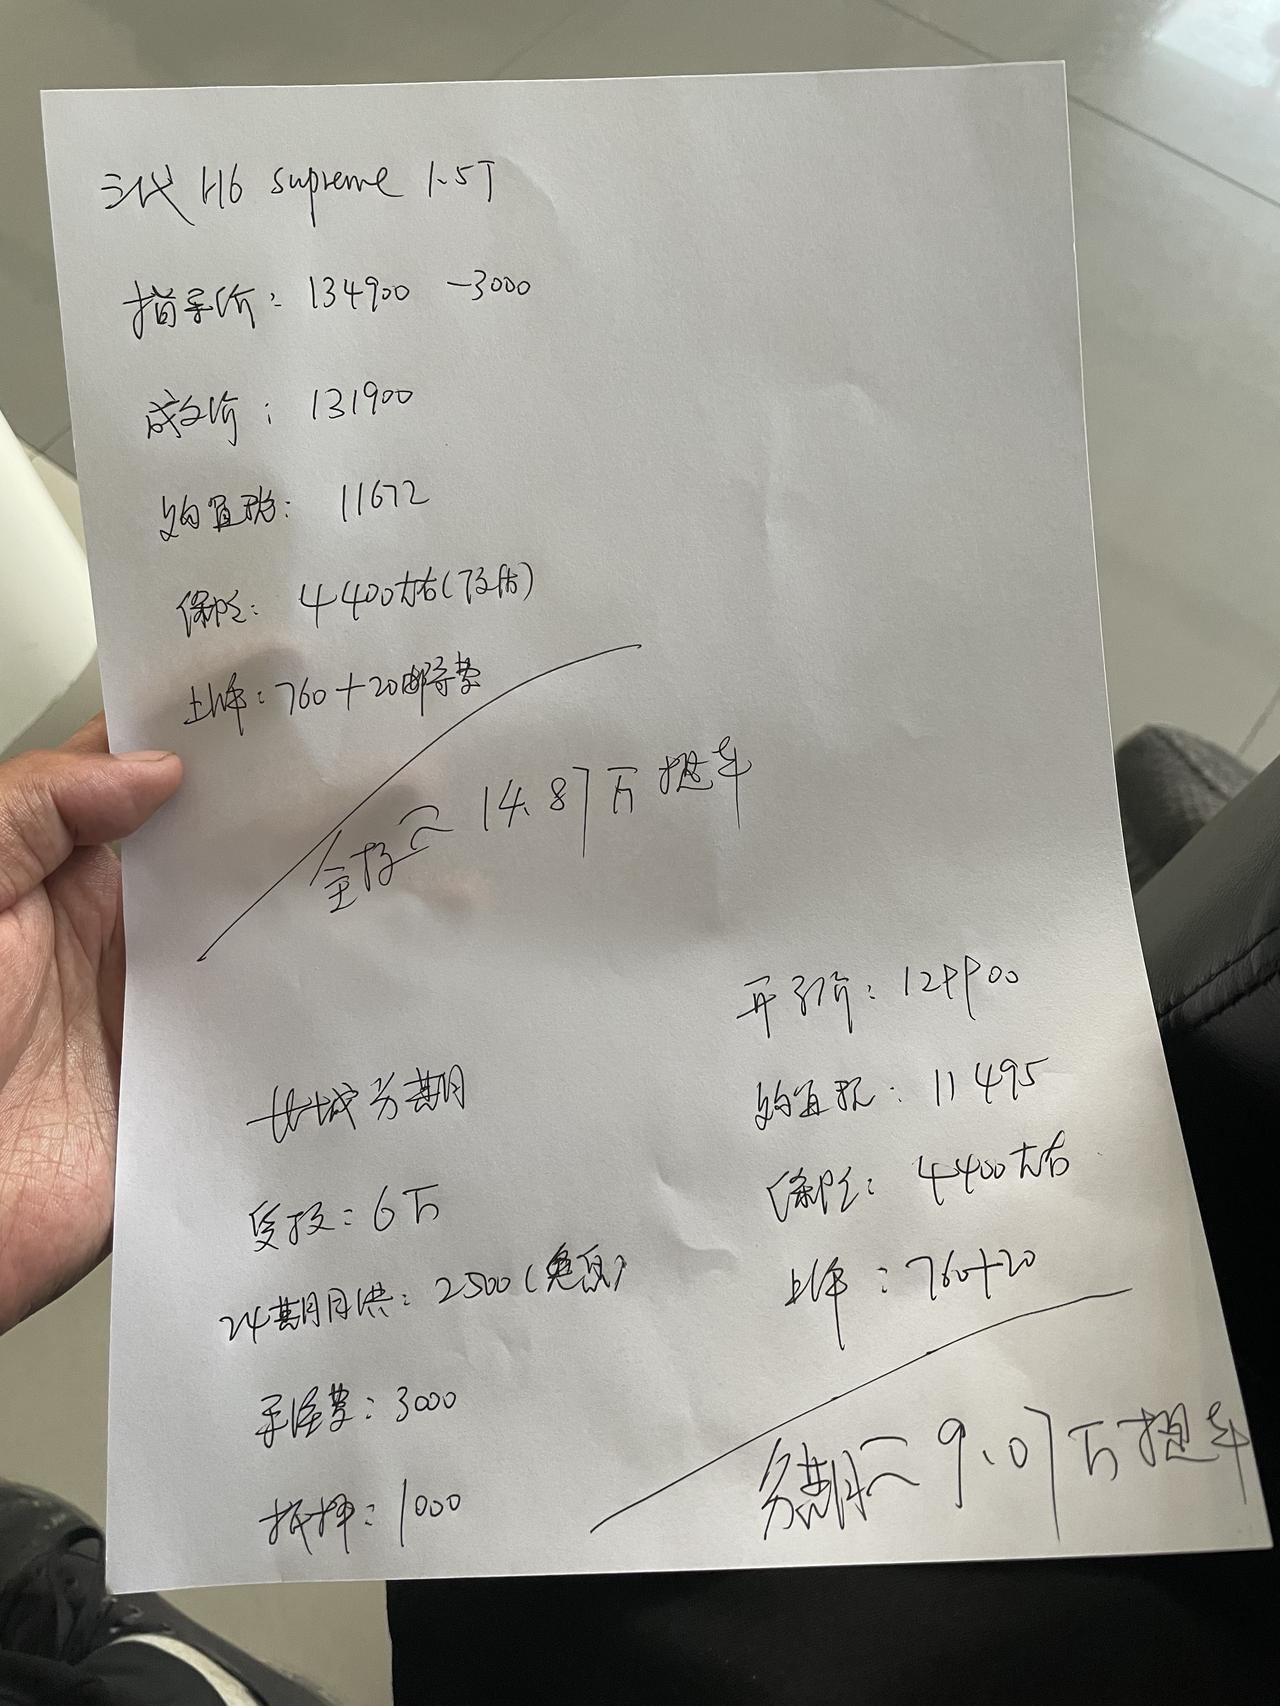 三代 H6 supreme 1.5T
指导价: 134900 -3000
成交价: 131900
购置税: 11672
保险: 4400左右(预估)
上牌: 760+20邮寄费
全款≈14.87万提车
长城分期
贷款: 6万
24期月供: 2500(免息)
手续费: 3000
抵押: 1000
开引价: 129900
购置税: 11495
保险: 4400左右
上牌: 760+20
分期≈9.07万提车